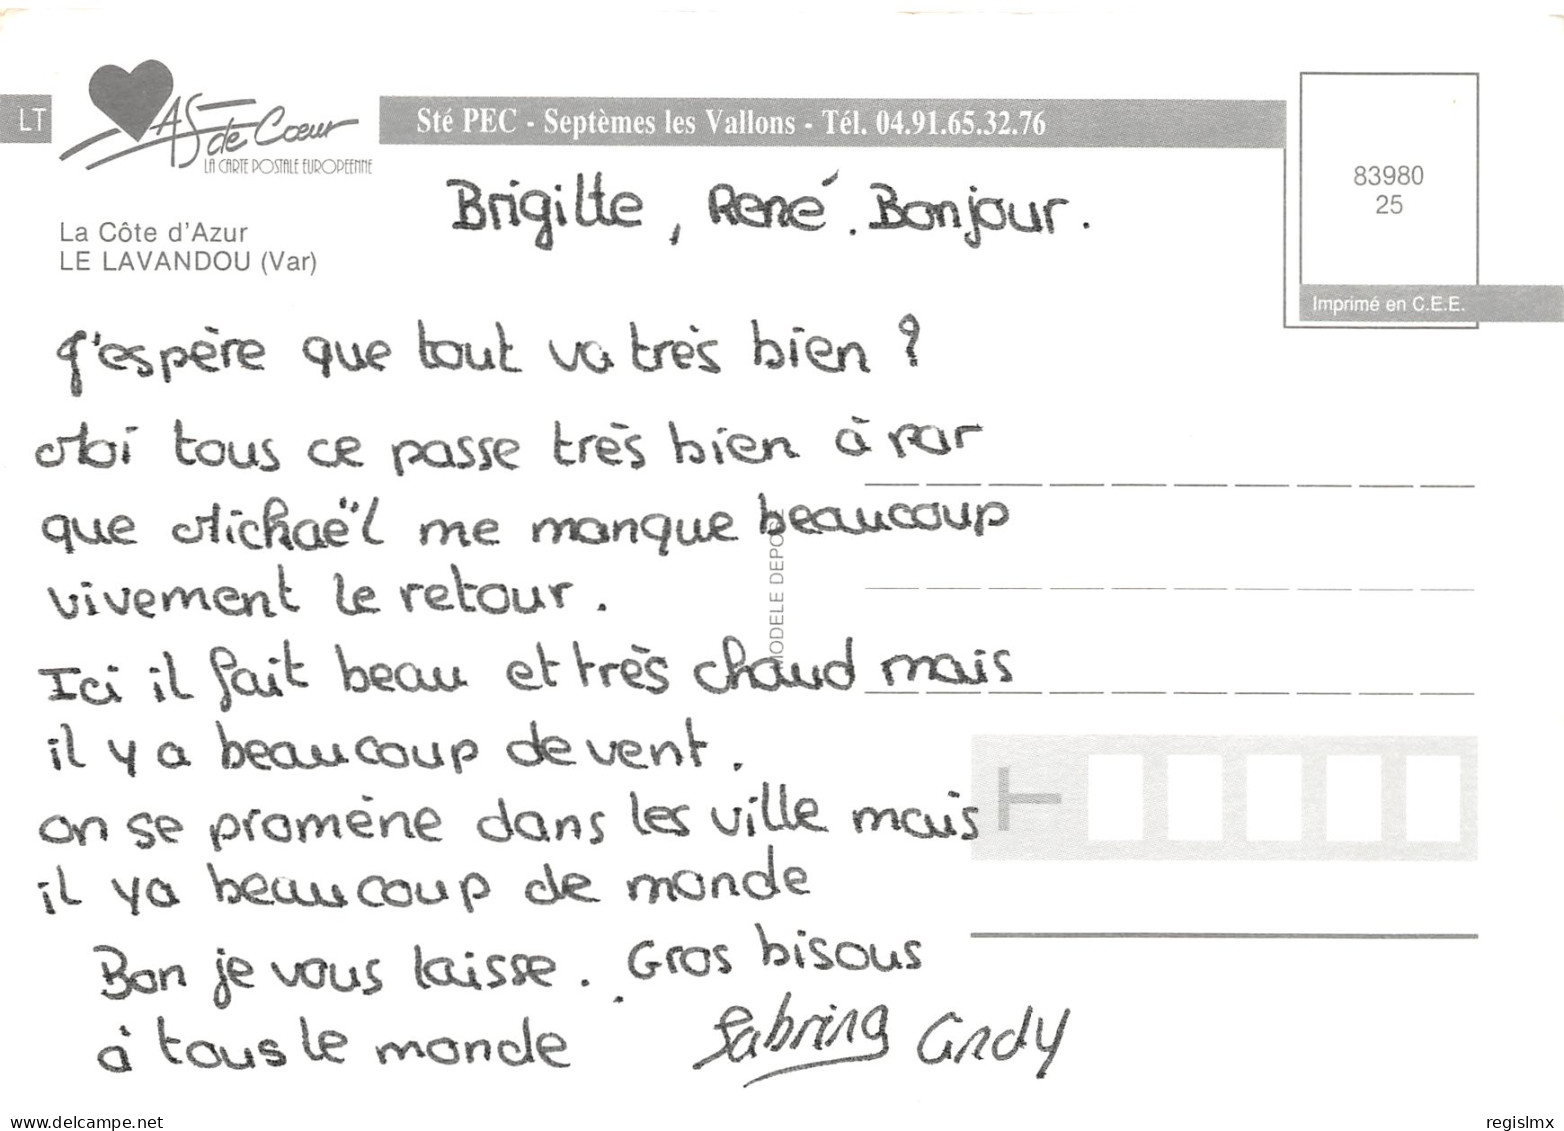 LT
AS de Cœur
LA CARTE POSTALE EUROPEENNE
Sté PEC - Septèmes les Vallons - Tél. 04.91.65.32.76
83980
25
Imprimé en C.E.E.
La Côte d'Azur
LE LAVANDOU (Var)
Brigitte, René. Bonjour.
J'espère que tout va très bien ?
Moi tous ce passe très bien à par
que Michaël me manque beaucoup
vivement le retour.
Ici il fait beau et très chaud mais
il y a beaucoup de vent.
on se promène dans les ville mais
il y a beaucoup de monde
Bon je vous laisse. Gros bisous
à tous le monde
Sabrina Cindy
MODELE DEPOSE
delcampe.net
regislmx